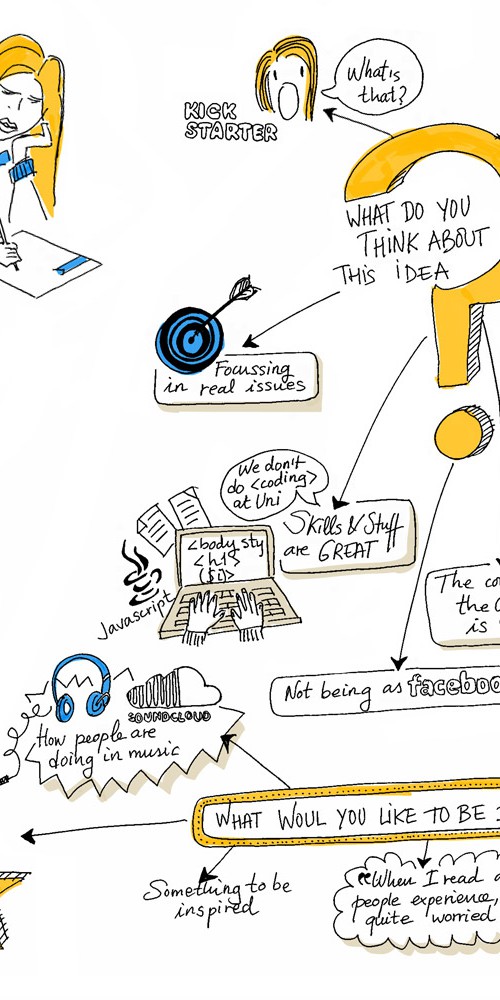 What's
that?
KICK
STARTER
WHAT DO YOU
THINK ABOUT
THIS IDEA
Focussing
in real issues
We don't
do <coding>
at Uni
Skills & Stuff
are GREAT
<body sty
<h1>
($1)>
Javascript
The co
the
is
Not being as faceboo
SOUNDCLOUD
How people are
doing in music
WHAT WOUL YOU LIKE TO BE
Something to be
inspired
"When I read a
people experience,
quite worried